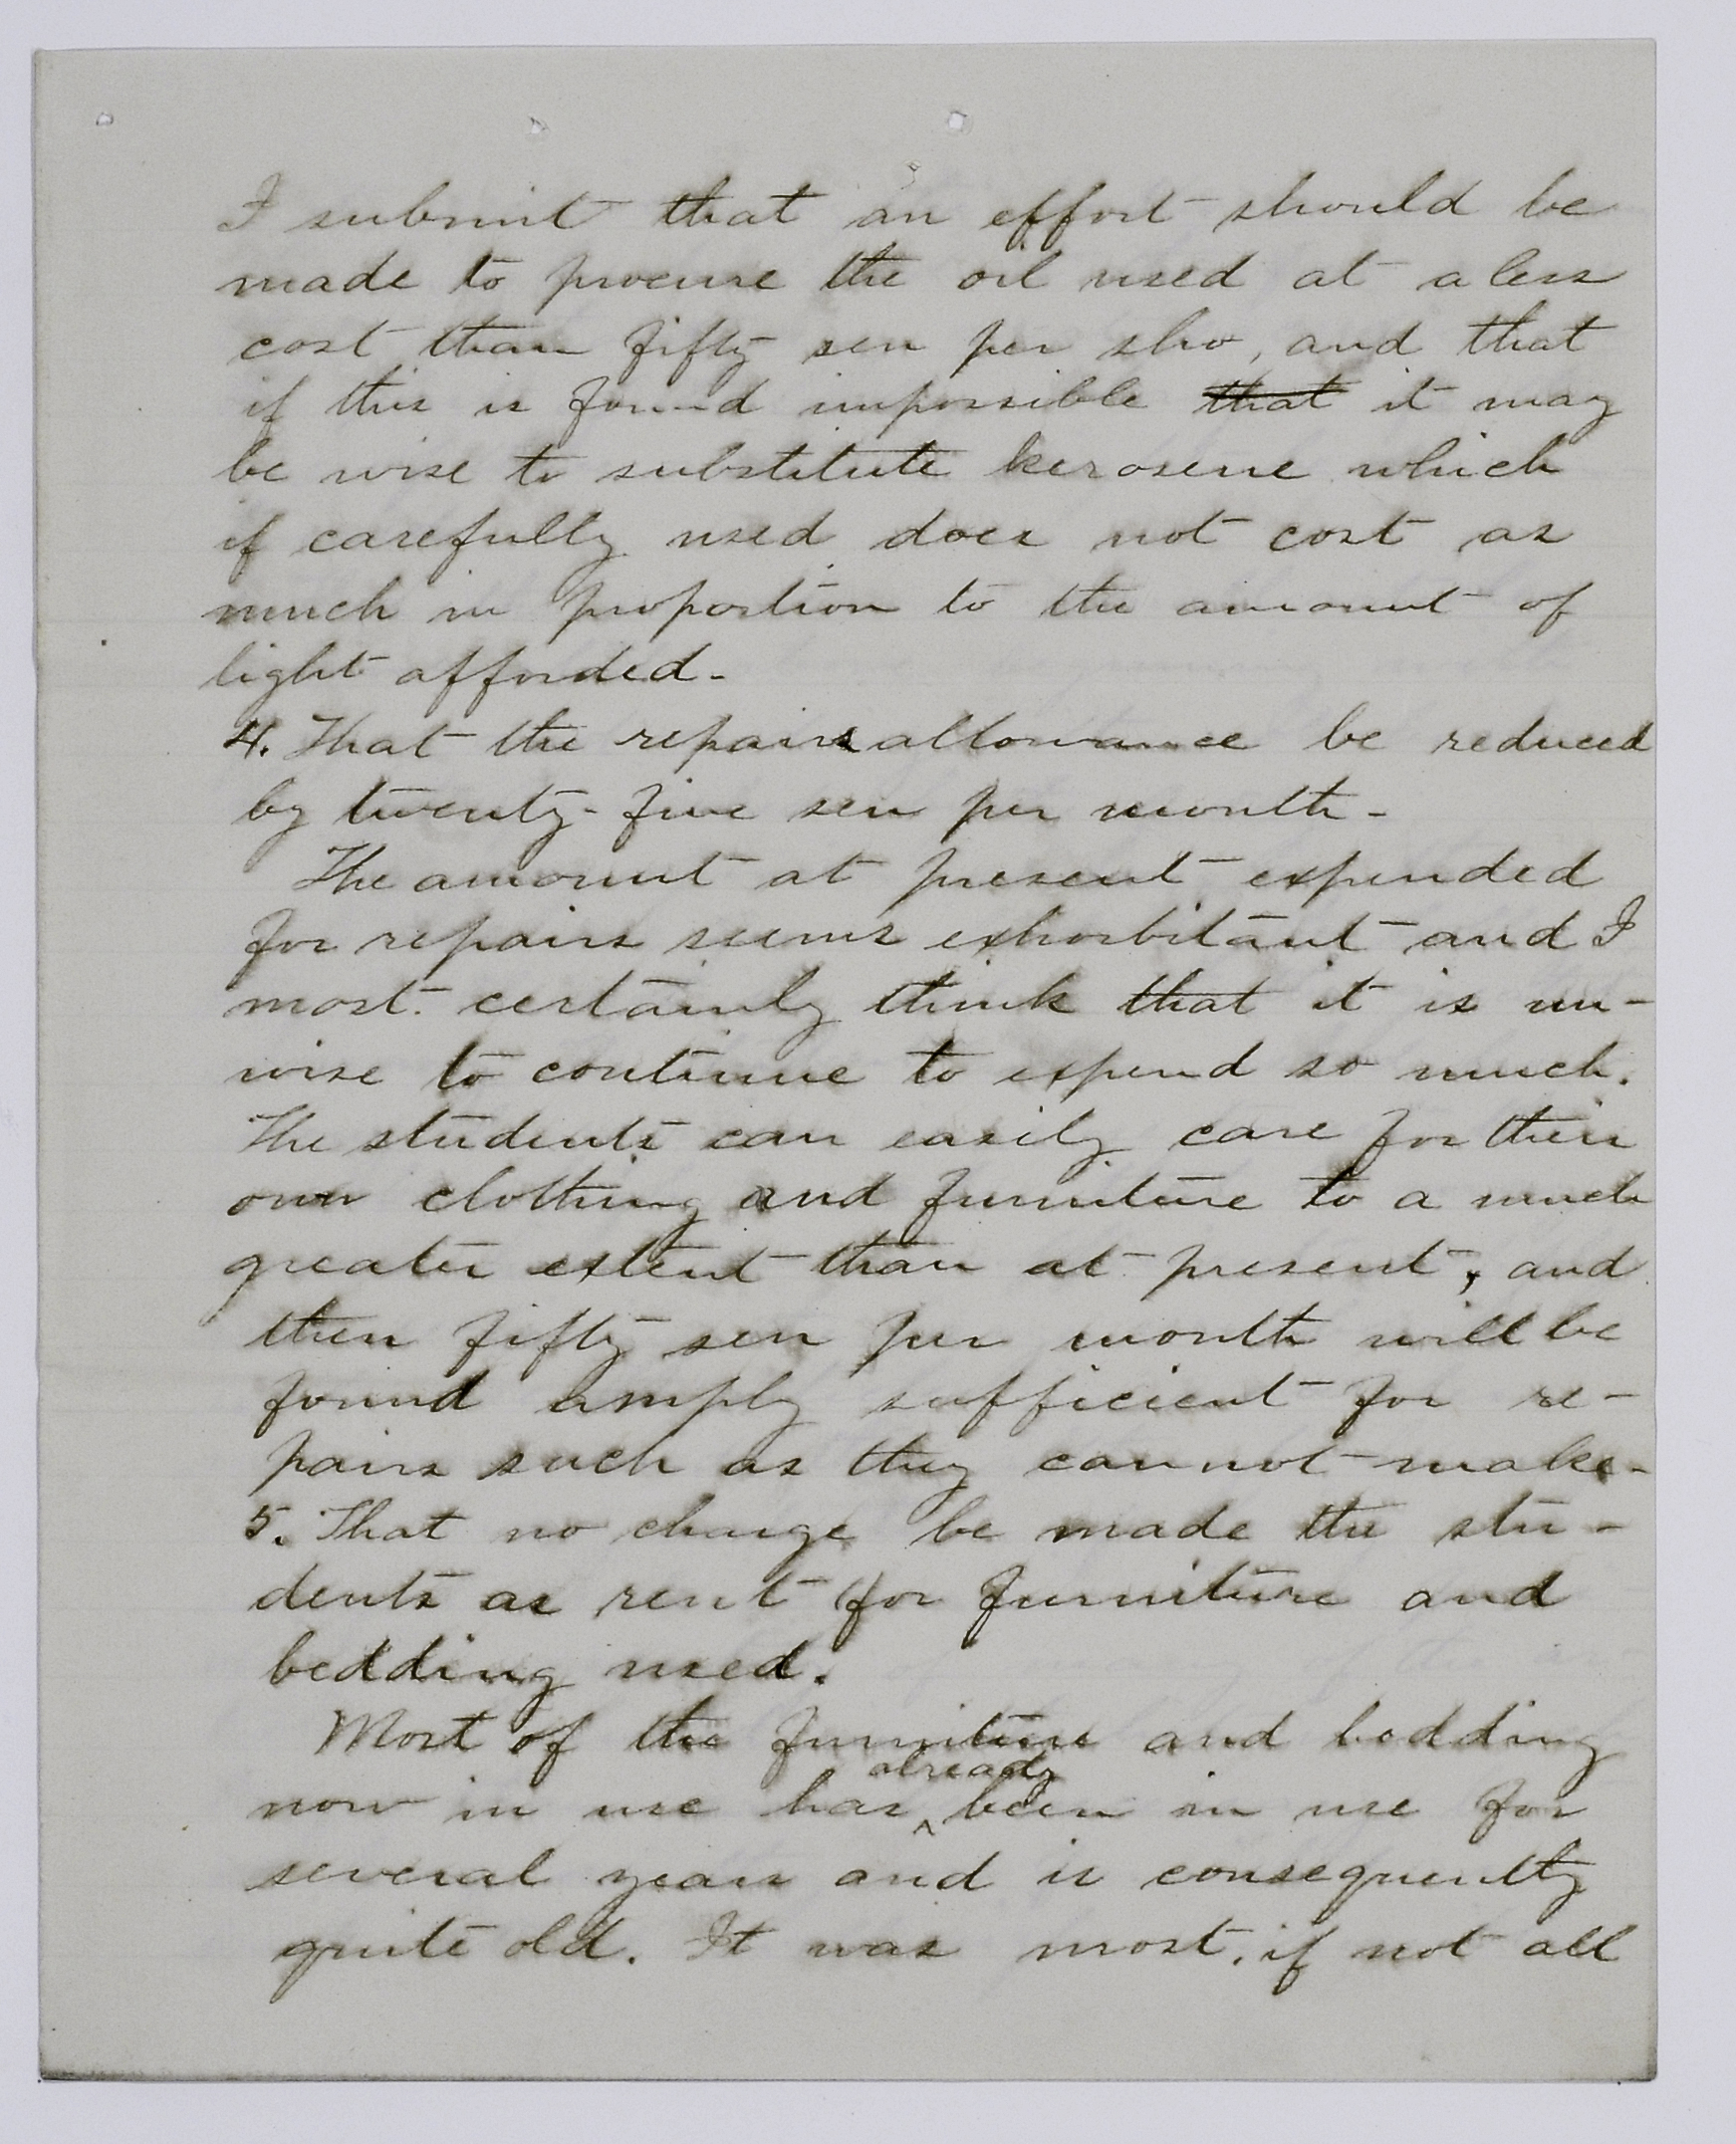 I submit that an effort should be
made to procure the oil used at a less
cost than fifty sen per sho, and that
if this is found impossible ~~that~~ it may
be wise to substitute kerosene which
if carefully used does not cost as
much in proportion to the amount of
light afforded.
4. That the repairs allowance be reduced
by twenty-five sen per month.
The amount at present expended
for repairs seems exhorbitant and I
most certainly think that it is un-
wise to continue to expend so much.
The students can easily care for their
own clothing and furniture to a much
greater extent than at present, and
then fifty sen per month will be
found amply sufficient for re-
pairs such as they cannot make.
5. That no charge be made the stu-
dents as rent for furniture and
bedding used.
Most of the furniture and bedding
already
now in use has ^ been in use for
several years and is consequently
quite old. It was most, if not all